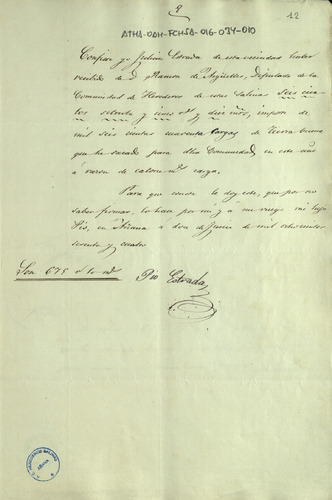 9
12
ATHA-DAH-FCHSA-016-034-010
Confieso yo Julian Estrada de esta vecindad haber
recibido de D. Ramon de Argüelles, Diputado de la
Comunidad de Herederos de estas Salinas Seis cien
tos setenta y cinco r.s y diez mrs, importe de
mil seis cientas cuarenta cargas de tierra buena
que ha sacado para dha Comunidad en este año
á razon de catorce mrs carga.
Para que conste le doy este, que por no
saber firmar, lo hace por mi y á mi ruego mi hijo
Pio, en Añana a dos de Junio de mil ochocientos
sesenta y cuatro
Son 675 rs 10 ms
Pio Estrada